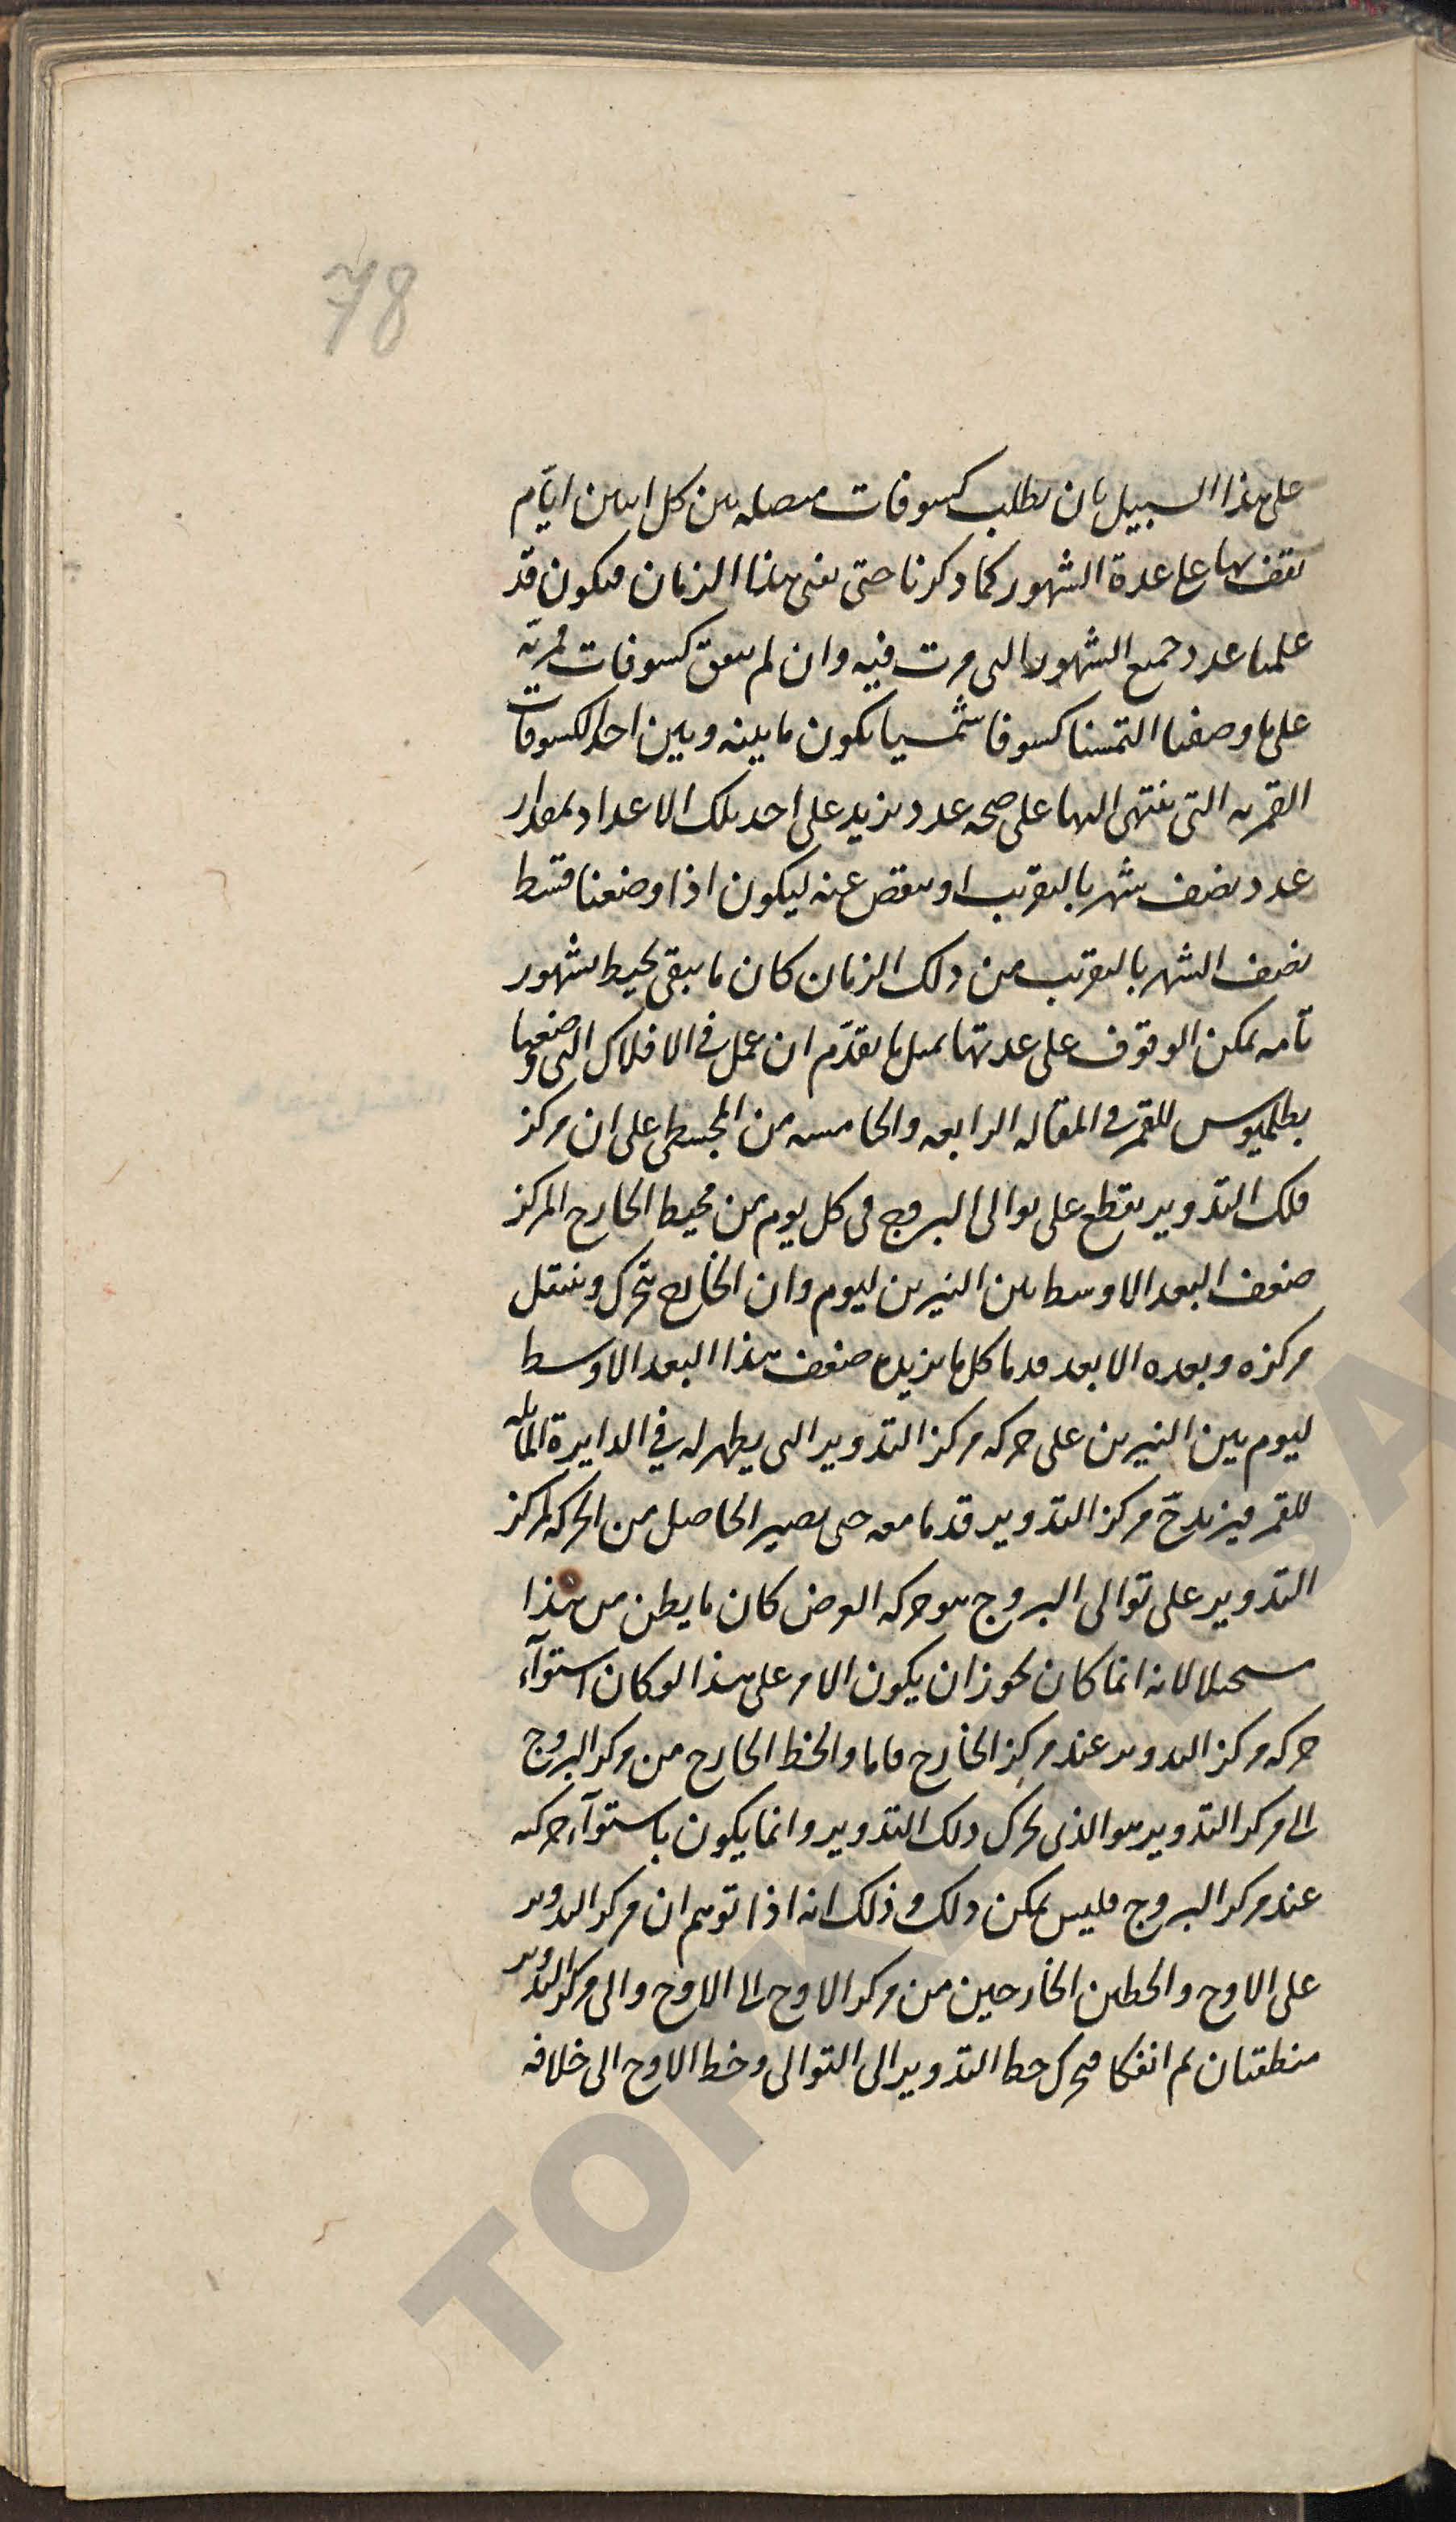 78
على هذا السبيل بان نطلب كسوفات متصله بين كل اثنين ايّام
نقف بها على عدة الشهور كما ذكرنا حتى يفنى هذا الزمان فيكون قد
علمنا عدد جميع الشهور التى مرت فيه وان لم يتفق كسوفات قمريّة
على ما وصفنا التمسنا كسوفا شمسيا يكون ما بينه وبين احد الكسوفات
القمريه التى ننتهى اليها على صحه عدد يزيد على احد تلك الاعداد بمقدار
عدد نصف شهر بالتقريب او ينقص عنه ليكون اذا وضعنا قسط
نصف الشهر بالتقريب من ذلك الزمان كان ما يبقى يحيط بشهور
تامه يمكن الوقوف على عدتها بمثل ما تقدّم ان عمل فى الافلاك التى وضعها
بطلميوس للقمر فى المقاله الرابعه والخامسه من المجسطى على ان مركز
فلك التدوير يقطع على توالى البروج فى كل يوم من محيط الخارج المركز
ضعف البعد الاوسط بين النيرين ليوم وان الخارج يتحرك وينتقل
مركزه وبعده الابعد قدما كل ما يزيده ضعف هذا البعد الاوسط
ليوم بين النيرين على حركه مركز التدوير التى يظهر له فى الدايرة المايله
للقمر فيزيدح مركز التدوير قدما معه حتى يصير الحاصل من الحركه لمركز
التدوير على توالى البروج هو حركه العرض كان ما يظن من هذا
مستحيلا لانه انما كان يجوز ان يكون الامر على هذا لو كان استوآء
حركه مركز التدوير عند مركز الخارج فاما والخط الخارج من مركز البروج
الى مركز التدوير هو الذى يحرك ذلك التدوير وانما يكون باستوآء حركته
عند مركز البروج فليس يمكن ذلك وذلك انه اذا توهم ان مركز التدوير
على الاوج والخطين الخارجين من مركز الاوج الى الاوج والى مركز التدوير
منطقتان ثم انفكا فتحرك خط التدوير الى التوالى وخط الاوج الى خلافه